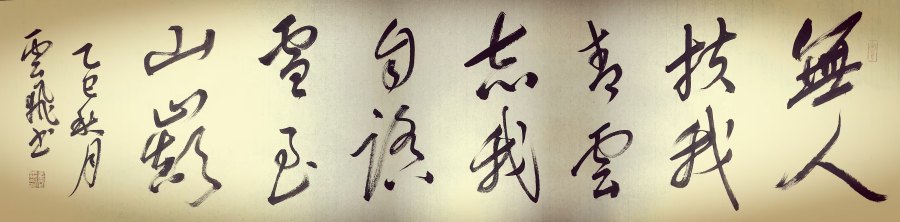 無人
扶我
青雲
志我
自踏
雪至
山巔
乙巳秋月
雲飛书